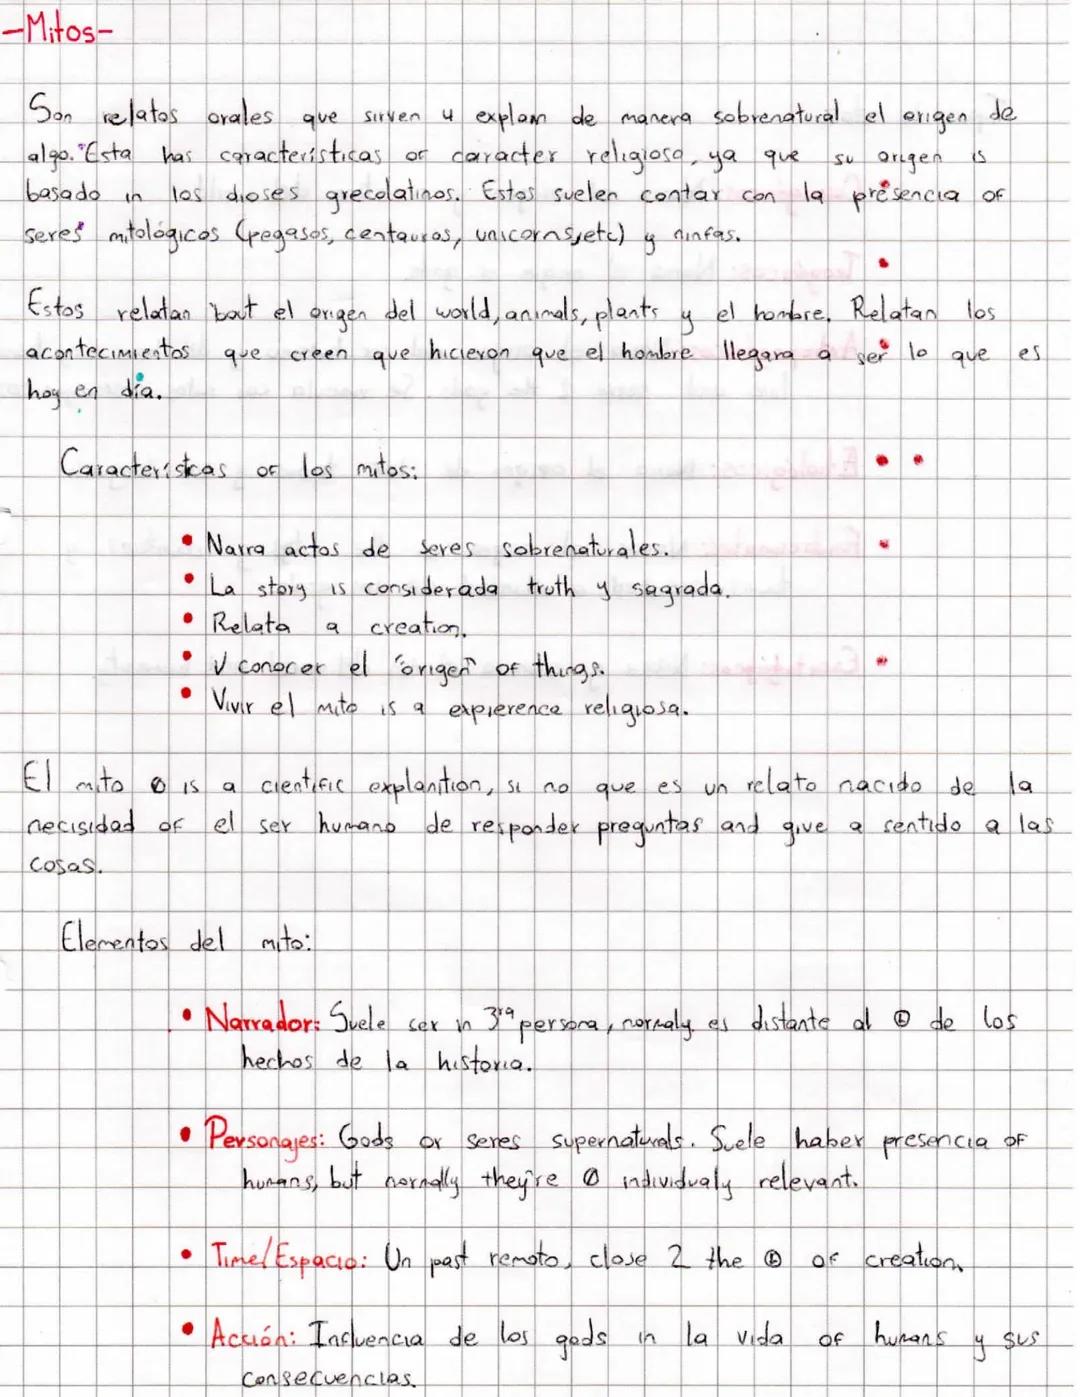 -Mitos-
Son relatos orales que sirven 4 explain de manera sobrenatural el origen de
algo. Esta has características of caracter religioso, ya que su origen is
basado in los dioses grecolatinos. Estos suelen contar con la presencia of
seres mitológicos (pegasos, centauros, unicorns, etc) y ninfas.
Estos relatan 'bout el origen del world, animals, plants y el hombre. Relatan los
acontecimientos que creen que hicieron que el hombre llegara a ser lo que es
hoy en día.
Características of los mitos:
• Narra actos de seres sobrenaturales.
• La story is considerada truth y sagrada.
• Relata a creation.
• V conocer el "origen" of things.
• Vivir el mito is a expierence religiosa.
El mito Ø is a cientific explanition, si no que es un relato nacido de la
necisidad of el ser humano de responder preguntas and give a sentido a las
cosas.
Elementos del mito:
• Narrador: Suele ser in 3ra persona, normaly es distante al de los
hechos de la historia.
• Personajes: Gods or seres supernaturals. Suele haber presencia of
humans, but normally they're Ø individualy relevant.
• Time/Espacio: Un past remoto, close 2 the of creation.
• Acción: Influencia de los gods in la vida of humans y sus
consecuencias.